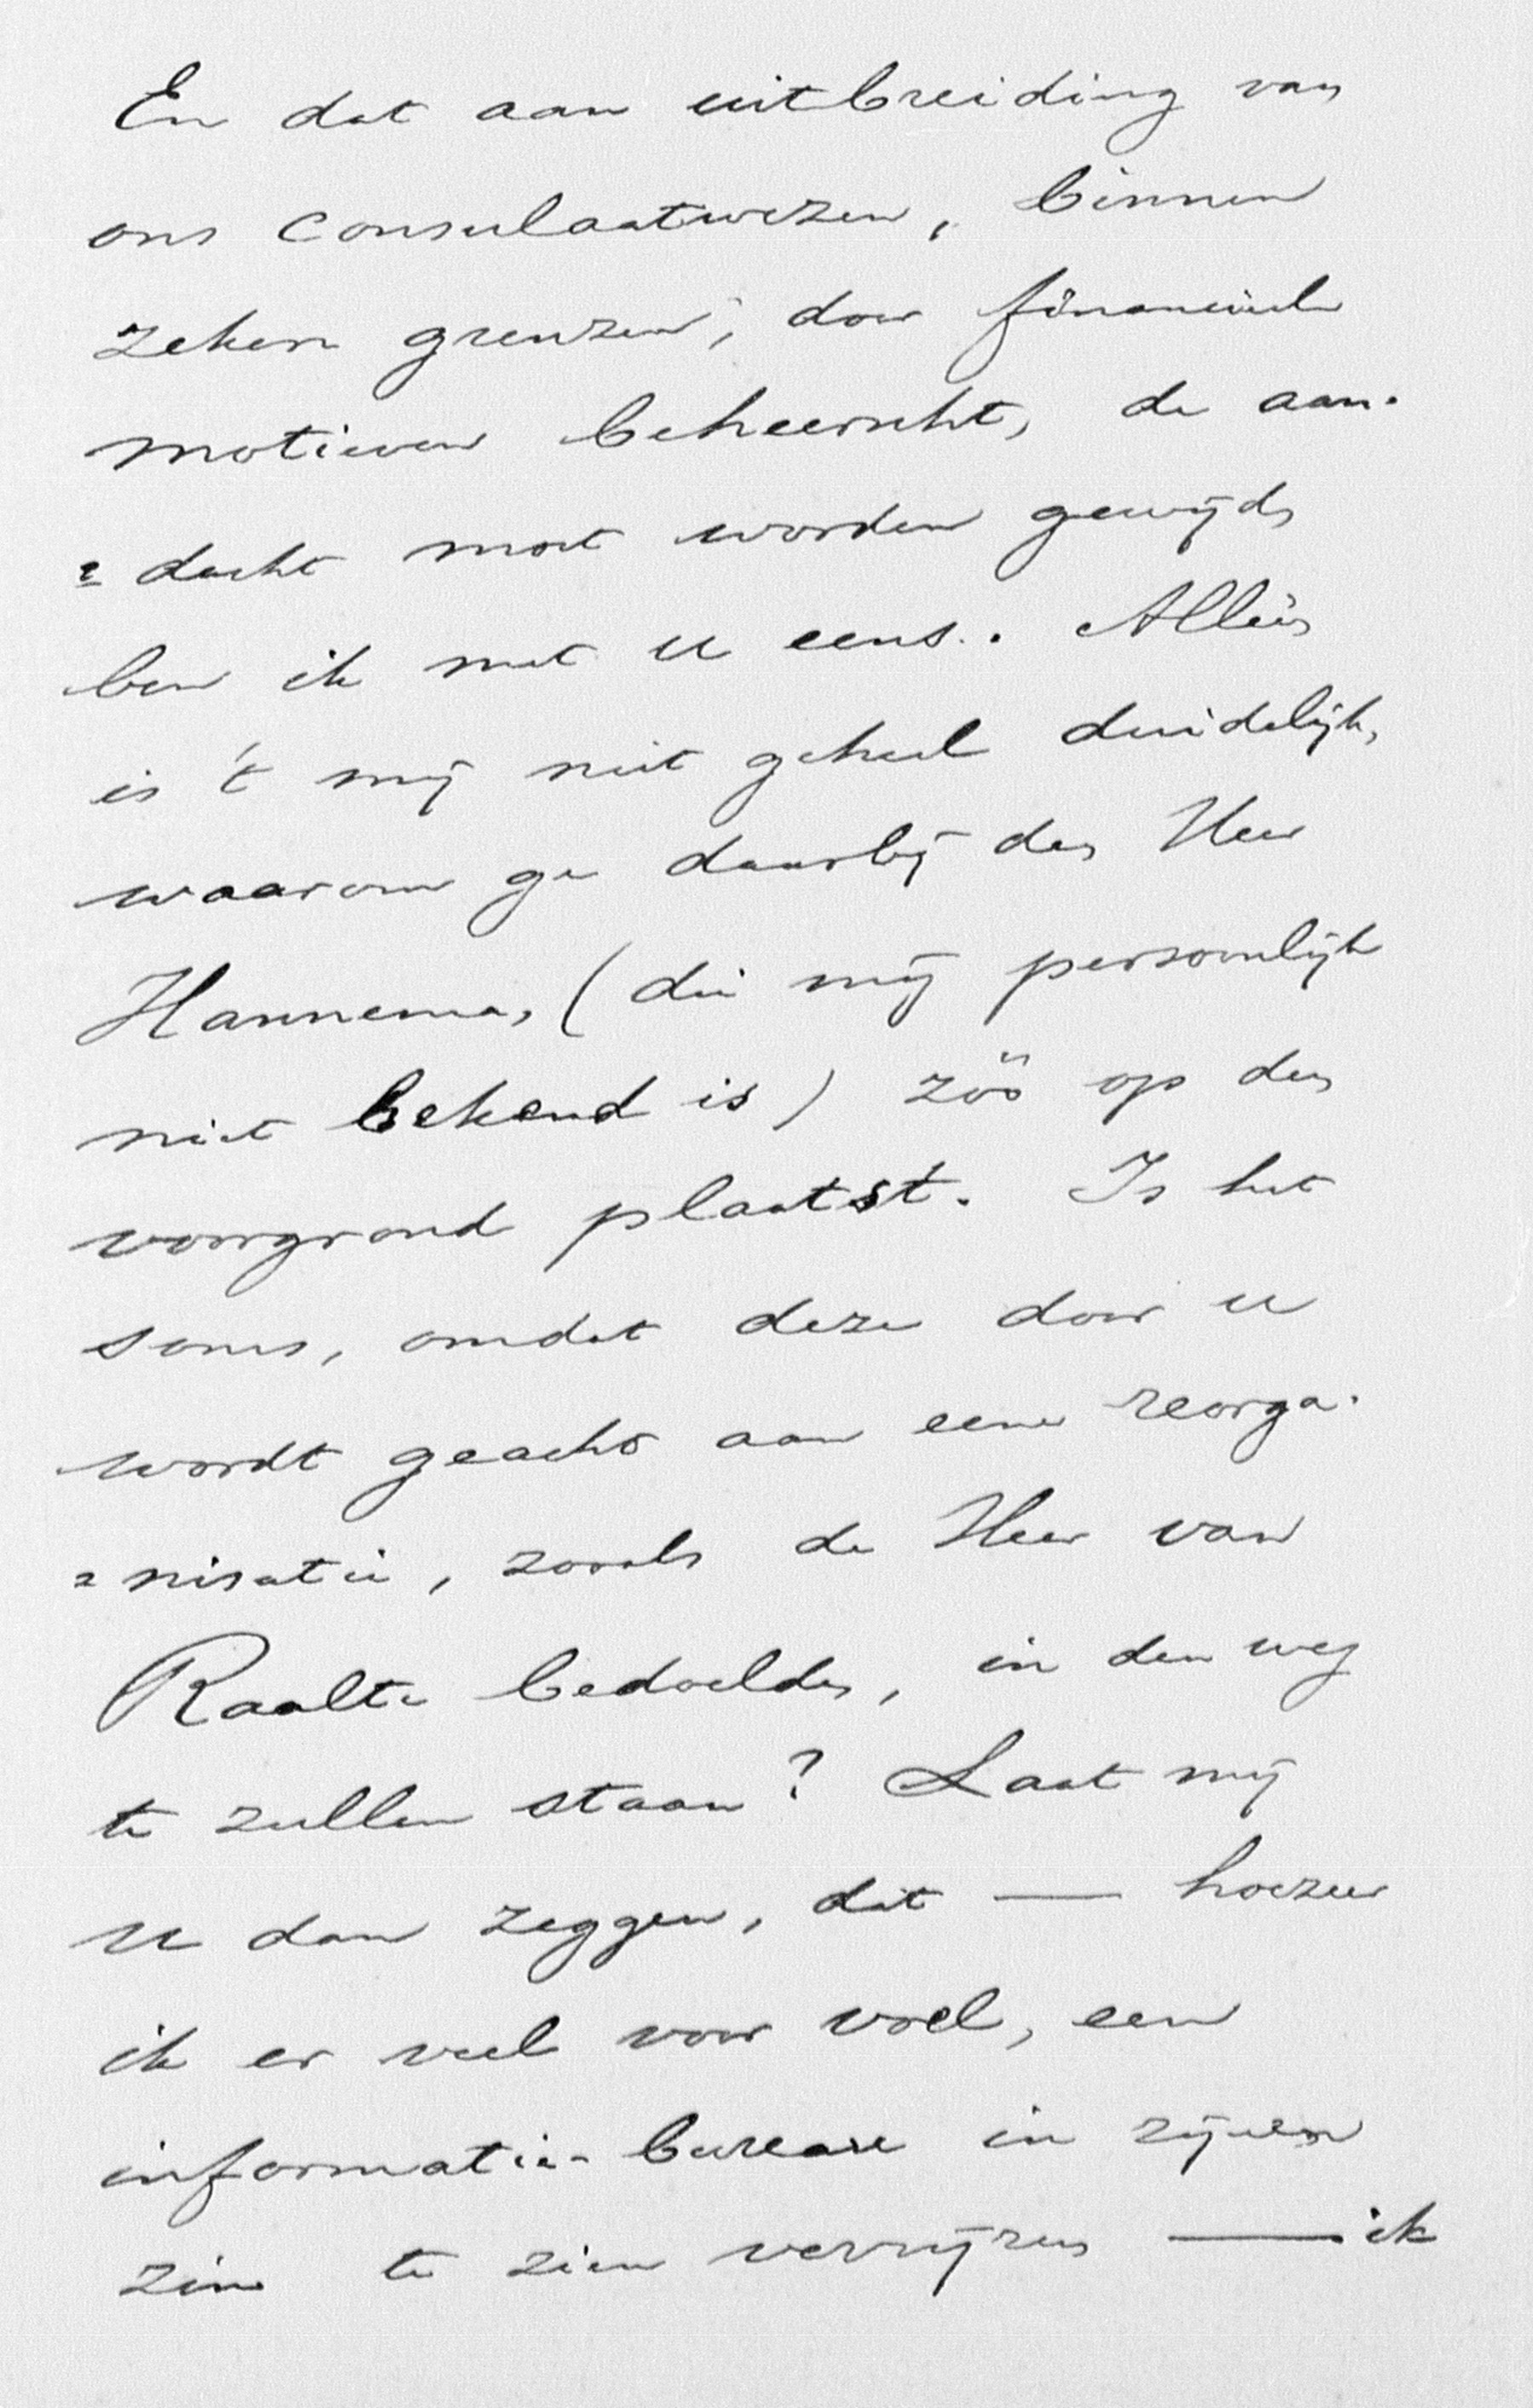 En dat aan uitbreiding van
ons consulaatwezen, binnen
zekere grenzen, door financieele
motieven beheerscht, de aan-
=dacht moet worden gewijd,
ben ik met u eens. Alleen
is 't mij niet geheel duidelijk,
waarom ge daarbij den Heer
Hannema, (die mij persoonlijk
niet bekend is) zóó op den
voorgrond plaatst. Is het
soms, omdat deze door u
wordt geacht aan eene reorga-
=nisatie, zooals de Heer van
Raalte bedoelde, in den weg
te zullen staan? Laat mij
u dan zeggen, dat — hoezeer
ik er veel voor voel, een
informatie-bureau in zijnen
zin te zien verrijzen — ik